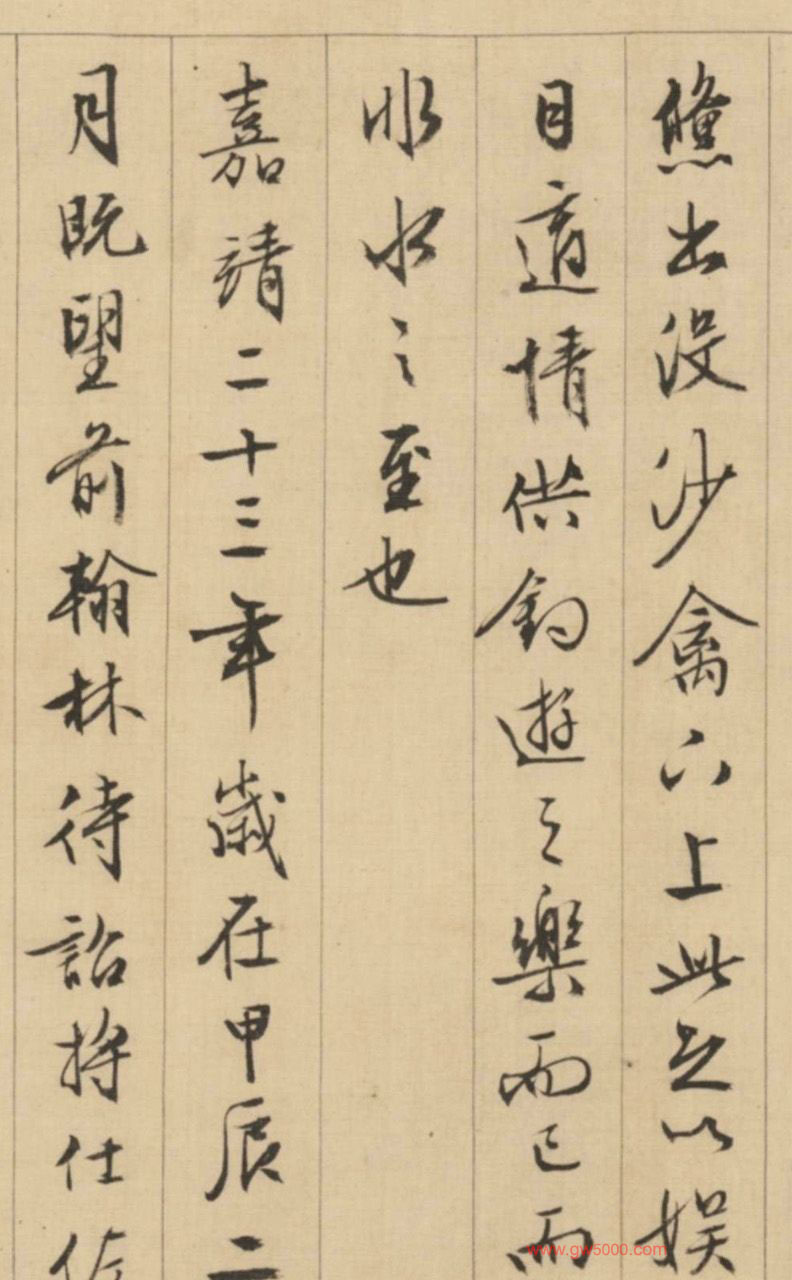 出没沙禽下上此足以娱
目適情供釣遊之樂而已而
非水之至也
嘉靖二十三年歲在甲辰二
月既望前翰林待詔将仕佐
www.gw5000.com